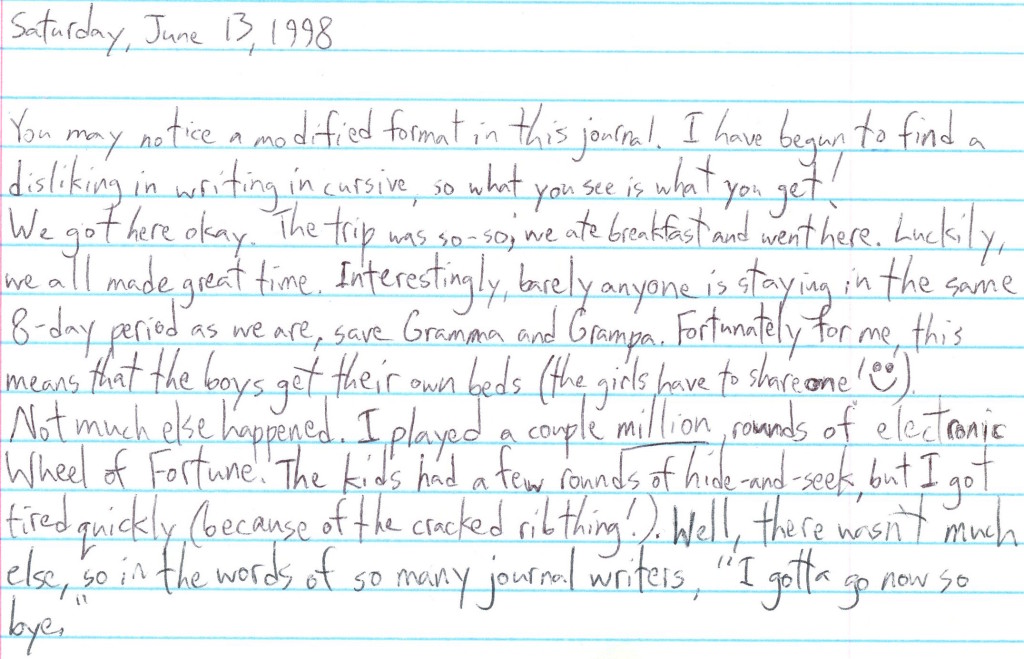 Saturday, June 13, 1998
You may notice a modified format in this journal. I have begun to find a
disliking in writing in cursive, so what you see is what you get!
We got here okay. The trip was so-so; we ate breakfast and went here. Luckily,
we all made great time. Interestingly, barely anyone is staying in the same
8-day period as we are, save Gramma and Grampa. Fortunately for me, this
means that the boys get their own beds (the girls have to share one! ☺).
Not much else happened. I played a couple million rounds of electronic
Wheel of Fortune. The kids had a few rounds of hide-and-seek, but I got
tired quickly (because of the cracked rib thing!). Well, there wasn't much
else, so in the words of so many journal writers, "I gotta go now so
bye."